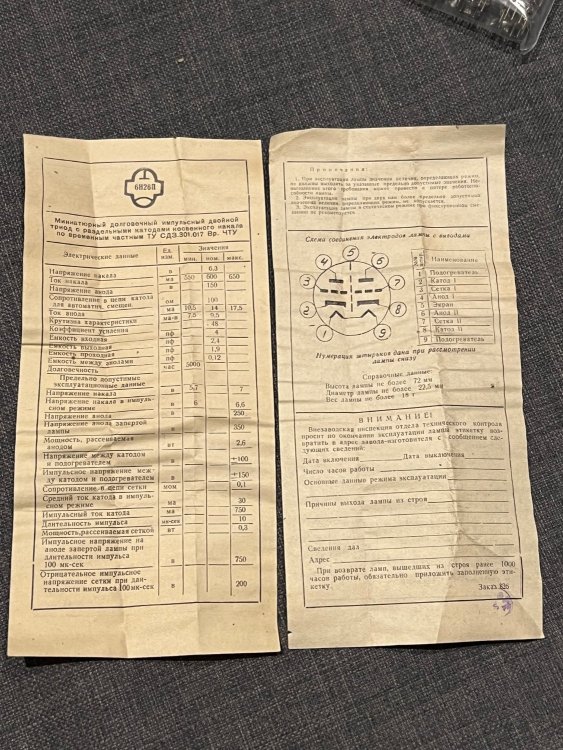 6Н26П
Миниатюрный долговечный импульсный двойной
триод с раздельными катодами косвенного накала
по временным частным ТУ СДЗ.301.017 Вр. ЧТУ
Электрические данные Ед. изм. Значения
мин. ном. макс.
Напряжение накала в 6,3
Ток накала ма 550 600 650
Напряжение анода в 150
Сопротивление в цепи катода
для автоматич. смещен. ом 100
Ток анода ма 10,5 14 17,5
Крутизна характеристики ма-в 7,5 9,5
Коэффициент усиления 48
Емкость входная пф 4
Емкость выходная пф 2,4
Емкость проходная пф 1,9
Емкость между анодами пф 0,12
Долговечность час 5000
Предельно допустимые
эксплуатационные данные
Напряжение накала в 5,7 7
Напряжение накала в импуль-
сном режиме в 6 6,6
Напряжение анода в 250
Напряжение анода запертой
лампы в 350
Мощность, рассеиваемая
анодом вт 2,6
Напряжение между катодом
и подогревателем в ±100
Импульсное напряжение меж-
ду катодом и подогревателем в ±150
Сопротивление в цепи сетки мом 0,1
Средний ток катода в импуль-
сном режиме ма 30
Импульсный ток катода ма 750
Длительность импульса мк-сек 10
Мощность, рассеиваемая сеткой вт 0,3
Импульсное напряжение на
аноде запертой лампы при
длительности импульса
100 мк-сек в 750
Отрицательное импульсное
напряжение сетки при дли-
тельности импульса 100 мк-сек в 200
Примечания:
1. При эксплуатации лампы значения величин, определяющих режим,
не должны выходить за указанные предельно допустимые значения. Не-
выполнение этого требования может привести к потере работоспо-
собности лампы.
2. Эксплуатация лампы при двух или более предельно допустимых
значениях величин, определяющих режим, не допускается.
3. Эксплуатация лампы в статическом режиме при фиксированном сме-
щении не рекомендуется.
Схема соединения электродов лампы с выводами
1 2 3 4 5 6 7 8 9
Наименование
1 Подогреватель
2 Катод I
3 Сетка I
4 Анод I
5 Экран
6 Анод II
7 Сетка II
8 Катод II
9 Подогреватель
Нумерация штырьков дана при рассмотрении
лампы снизу
Справочные данные:
Высота лампы не более 72 мм
Диаметр лампы не более 22,5 мм
Вес лампы не более 18 г
ВНИМАНИЕ!
Внезаводская инспекция отдела технического контроля
просит по окончании эксплуатации лампы этикетку воз-
вратить в адрес завода-изготовителя с сообщением сле-
дующих сведений:
Дата включения Дата выключения
Число часов работы
Основные данные режима эксплуатации
Причины выхода лампы из строя
Сведения дал
Адрес
При возврате ламп, вышедших из строя ранее 1000
часов работы, обязательно приложить заполненную эти-
кетку.
Заказ 825